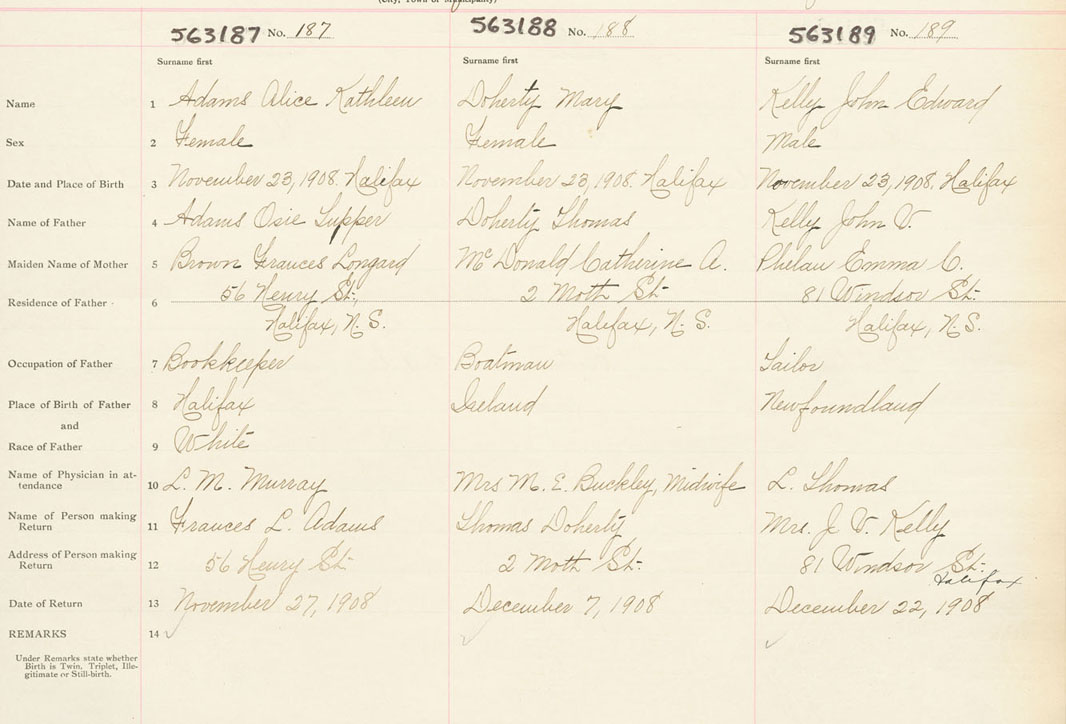 (City, Town or Municipality)
563187 No. 187 563188 No. 188 563189 No. 189
Surname first Surname first Surname first
Name 1 Adams Alice Kathleen Doherty Mary Kelly John Edward
Sex 2 Female Female Male
Date and Place of Birth 3 November 23, 1908. Halifax November 23, 1908. Halifax November 23, 1908. Halifax
Name of Father 4 Adams Osie Tupper Doherty Thomas Kelly John V.
Maiden Name of Mother 5 Brown Frances Longard McDonald Catherine A. Phelan Emma C.
Residence of Father 6 56 Henry St., 2 Moth St. 81 Windsor St.
Halifax, N.S. Halifax, N.S. Halifax, N.S.
Occupation of Father 7 Bookkeeper Boatman Tailor
Place of Birth of Father 8 Halifax Ireland Newfoundland
and
Race of Father 9 White
Name of Physician in at- 10 L. M. Murray Mrs M. E. Buckley, Midwife L. Thomas
tendance
Name of Person making 11 Frances L. Adams Thomas Doherty Mrs. J. V. Kelly
Return
Address of Person making 12 56 Henry St. 2 Moth St. 81 Windsor St.
Return Halifax
Date of Return 13 November 27, 1908 December 7, 1908 December 22, 1908
REMARKS 14
Under Remarks state whether
Birth is Twin, Triplet, Ille-
gitimate or Still-birth.